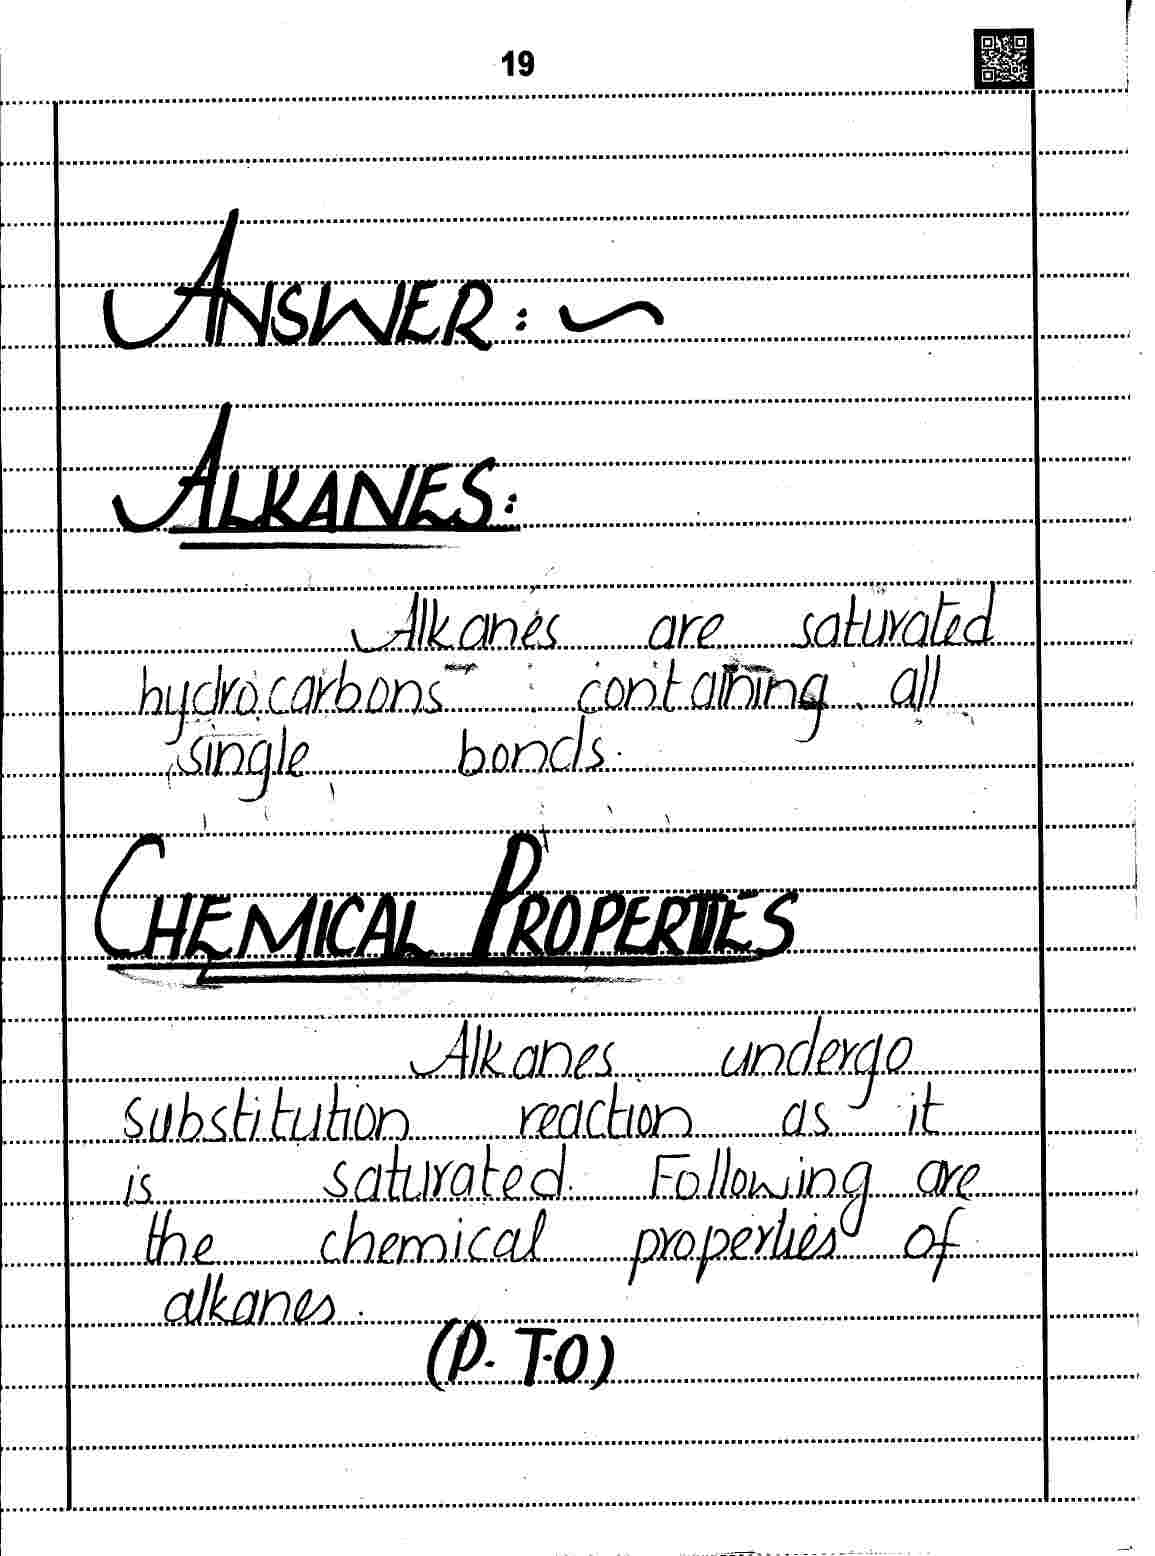 19
ANSWER:
ALKANES:
Alkanes are saturated
hydrocarbons containing all
single bonds.
CHEMICAL PROPERTIES
Alkanes undergo
substitution reaction as it
is saturated. Following are
the chemical properties of
alkanes.
(P.T.O)